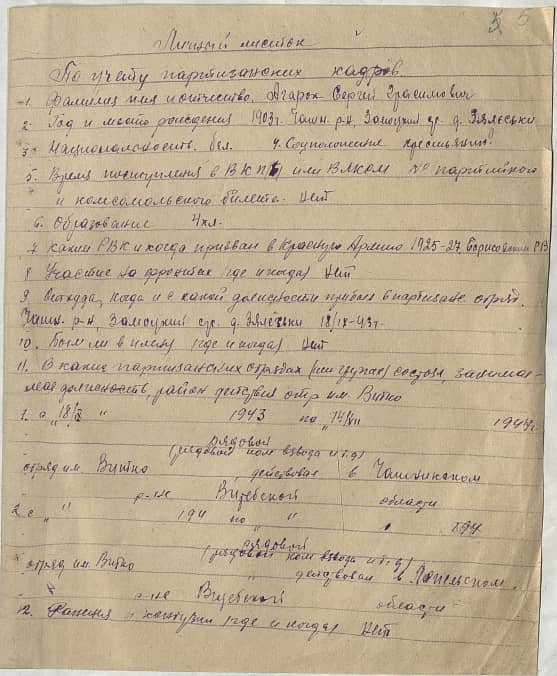 5
Личный листок
По учету партизанских кадров
1. Фамилия имя и отчество. Агарок Сергей
2. Год и место рождения 1903 г. Чашн. р-н, Замоцкий с/с. д. Зялёськи
3 Национальность. бел. 4. Соцположение крестьянин
5. Время поступления в ВКПб или ВЛКСМ № партийного
и комсомольского билета. Нет
6. Образование 4 кл.
7 каким РВК и когда призван в Красную Армию 1925-27 Борисовским РВК
8 Участие на фронтах где и когда) Нет
9 Откуда, когда и с какой должности прибыл в партизанс. отряд.
Чашн. р-н, Замоцкий с/с. д. Зялёськи 18/IX-43 г.
10. Был ли в плену (где и когда) Нет
11. В каких партизанских отрядах (или группах) состоял, занимае-
мая должность, район действия отр им. Витко
1. с " " 1943 по 1944 г.
рядовой
(рядовой ком взвода и т.д)
отряд им. Витко действовал в Чашникском
р-не Витебской области
2 с " " 194 по " " 194
рядовой
(рядовой ком взвода и т.д)
отряд им. Витко " действовал в Лепельском
р-не Витебской области
12. Ранения и контузии где и когда) Нет